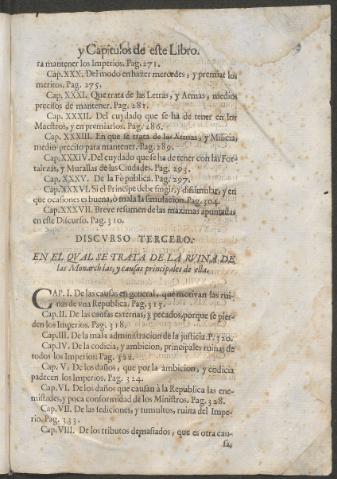 y Capitulos de este Libro.
ra mantener los Imperios. Pag. 271.
Cap. XXX. Del modo en hazer mercedes, y premiar los
meritos. Pag. 275.
Cap. XXXI. Que trata de las Letras, y Armas, medios
precisos de mantener. Pag. 281.
Cap. XXXII. Del cuydado que se ha de tener en los
Maestros, y en premiarlos. Pag. 286.
Cap. XXXIII. En que se trata de las Armas, y Milicia,
medio preciso para mantener. Pag. 289.
Cap. XXXIV. Del cuydado que se ha de tener con las For-
talezas, y Murallas de las Ciudades. Pag. 293.
Cap. XXXV. De la Fè publica. Pag. 297.
Cap. XXXVI. Si el Principe debe fingir, y dissimular, y en
que ocasiones es buena, ò mala la simulacion. Pag. 304.
Cap. XXXVII. Breve resumen de las maximas apuntadas
en este Discurso. Pag. 310.
DISCVRSO TERCERO.
EN EL QVAL SE TRATA DE LA RVINA DE
las Monarchias, y causas principales de ella.
CAP. I. De las causas en general, que motivan las rui-
nas de una Republica. Pag. 315.
Cap. II. De las causas externas, y pecados, porque se pier-
den los Imperios. Pag. 318.
Cap. III. De la mala administracion de la justicia. P. 320.
Cap. IV. De la codicia, y ambicion, principales ruinas de
todos los Imperios. Pag. 322.
Cap. V. De los daños, que por la ambicion, y codicia
padecen los Imperios. Pag. 324.
Cap. VI. De los daños que causan à la Republica las ene-
mistades, y poca conformidad de los Ministros. Pag. 328.
Cap. VII. De las sediciones, y tumultos, ruina del Impe-
rio. Pag. 333.
Cap. VIII. De los tributos demasiados, que es otra cau-
sa,